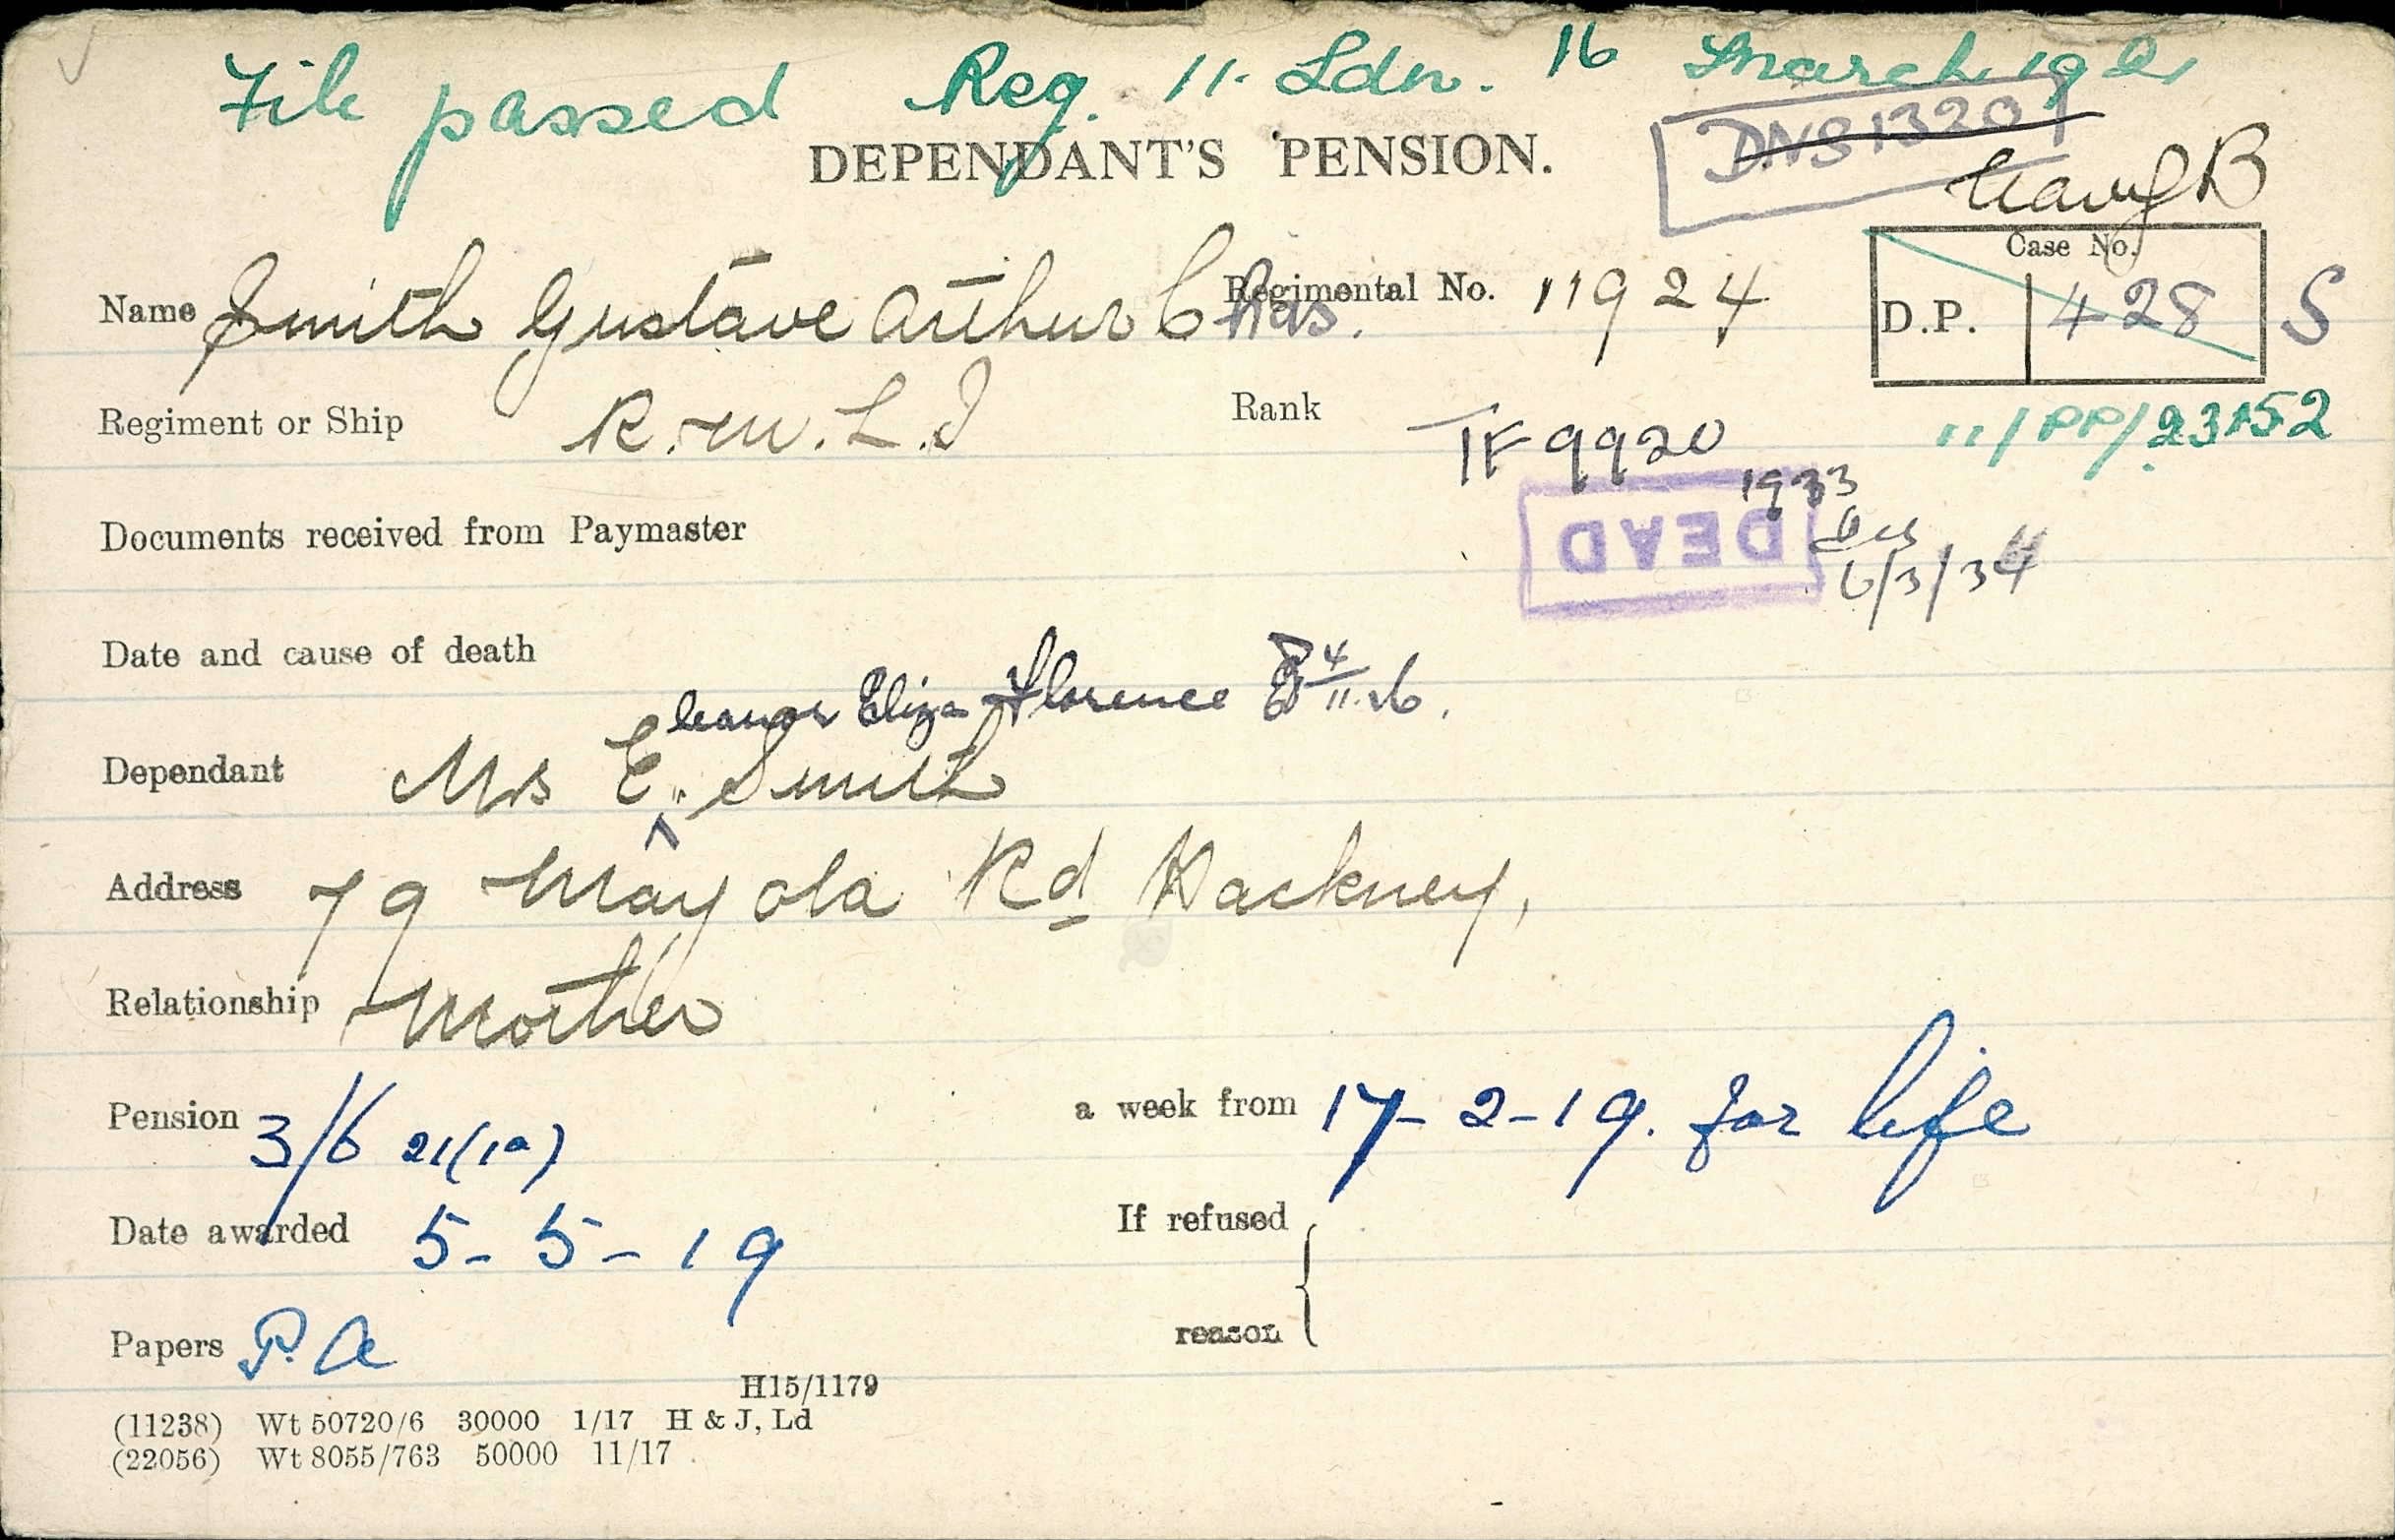 File passed Reg. 11. Ldn. 16 March 1921
DEPENDANT'S PENSION.
DNS 1320
Navy B
Case No.
Name Smith Gustave Arthur Chas. Regimental No. 11924
D.P. 428 S
Regiment or Ship R.M.L.I Rank
TF 9920
11/PP/23152
1933
DEAD
6/3/34
Documents received from Paymaster
Date and cause of death
Eleanor Eliza Florence
Dependant Mrs E. Smith
Address 79 Mayola Rd Hackney,
Relationship Mother
Pension 3/6 21(1a) a week from 17-2-19. for life
Date awarded 5-5-19 If refused
Papers P.A reason
H15/1179
(11238) Wt 50720/6 30000 1/17 H & J, Ld
(22056) Wt 8055/763 50000 11/17